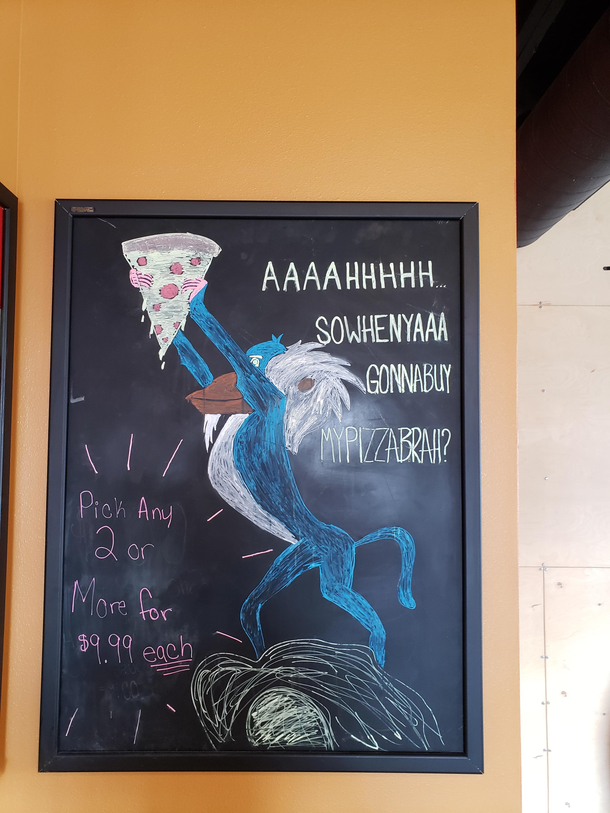 AAAAHHHHH...
SOWHENYAAA
GONNABUY
MYPIZZABRAH?
Pick Any
2 or
More for
$9.99 each